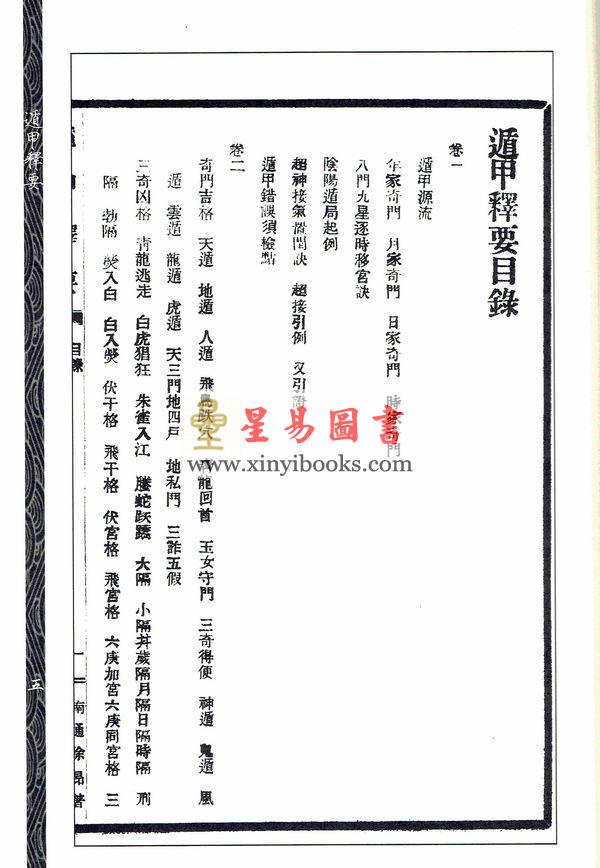 遁甲釋要目錄
卷一
遁甲源流
年家奇門 月家奇門 日家奇門 時家奇門
八門九星逐時移宮訣
陰陽遁局起例
超神接氣置閏訣 超接引例 又引證
遁甲錯誤須檢點
卷二
奇門吉格 天遁 地遁 人遁 飛鳥跌穴 青龍回首 玉女守門 三奇得使 神遁 鬼遁 風
遁 雲遁 龍遁 虎遁 天三門地四戶 地私門 三詐五假
三奇凶格 靑龍逃走 白虎猖狂 朱雀入江 螣蛇跃蹻 大隔 小隔 歲隔月隔日隔時隔 刑
隔 勃隔 熒入白 白入熒 伏干格 飛干格 伏宮格 飛宮格 六庚加宮六庚同宮格 三
目錄
一
南通徐昂著
遁甲釋要
五
星易圖書
www.xinyibooks.com